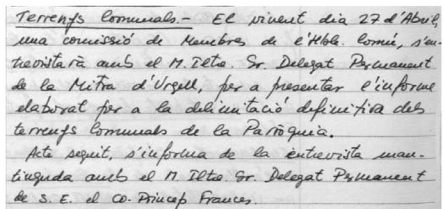 Terrenys Comunals.- El vinent dia 27 d'Abril,
una comissió de Membres de l'Hble. Comú, s'en-
trevistarà amb el M. Iltre. Sr. Delegat Permanent
de la Mitra d'Urgell, per a presentar l'informe
elaborat per a la delimitació definitiva dels
terrenys Comunals de la Parròquia.
Acte seguit, s'informa de la entrevista man-
tinguda amb el M. Iltre. Sr. Delegat Permanent
de S. E. el Co-Príncep Frances.